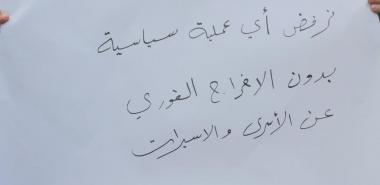 نرفض أي عملية سياسية
بدون الافراج الفوري
عن الأسرى والاسيرات